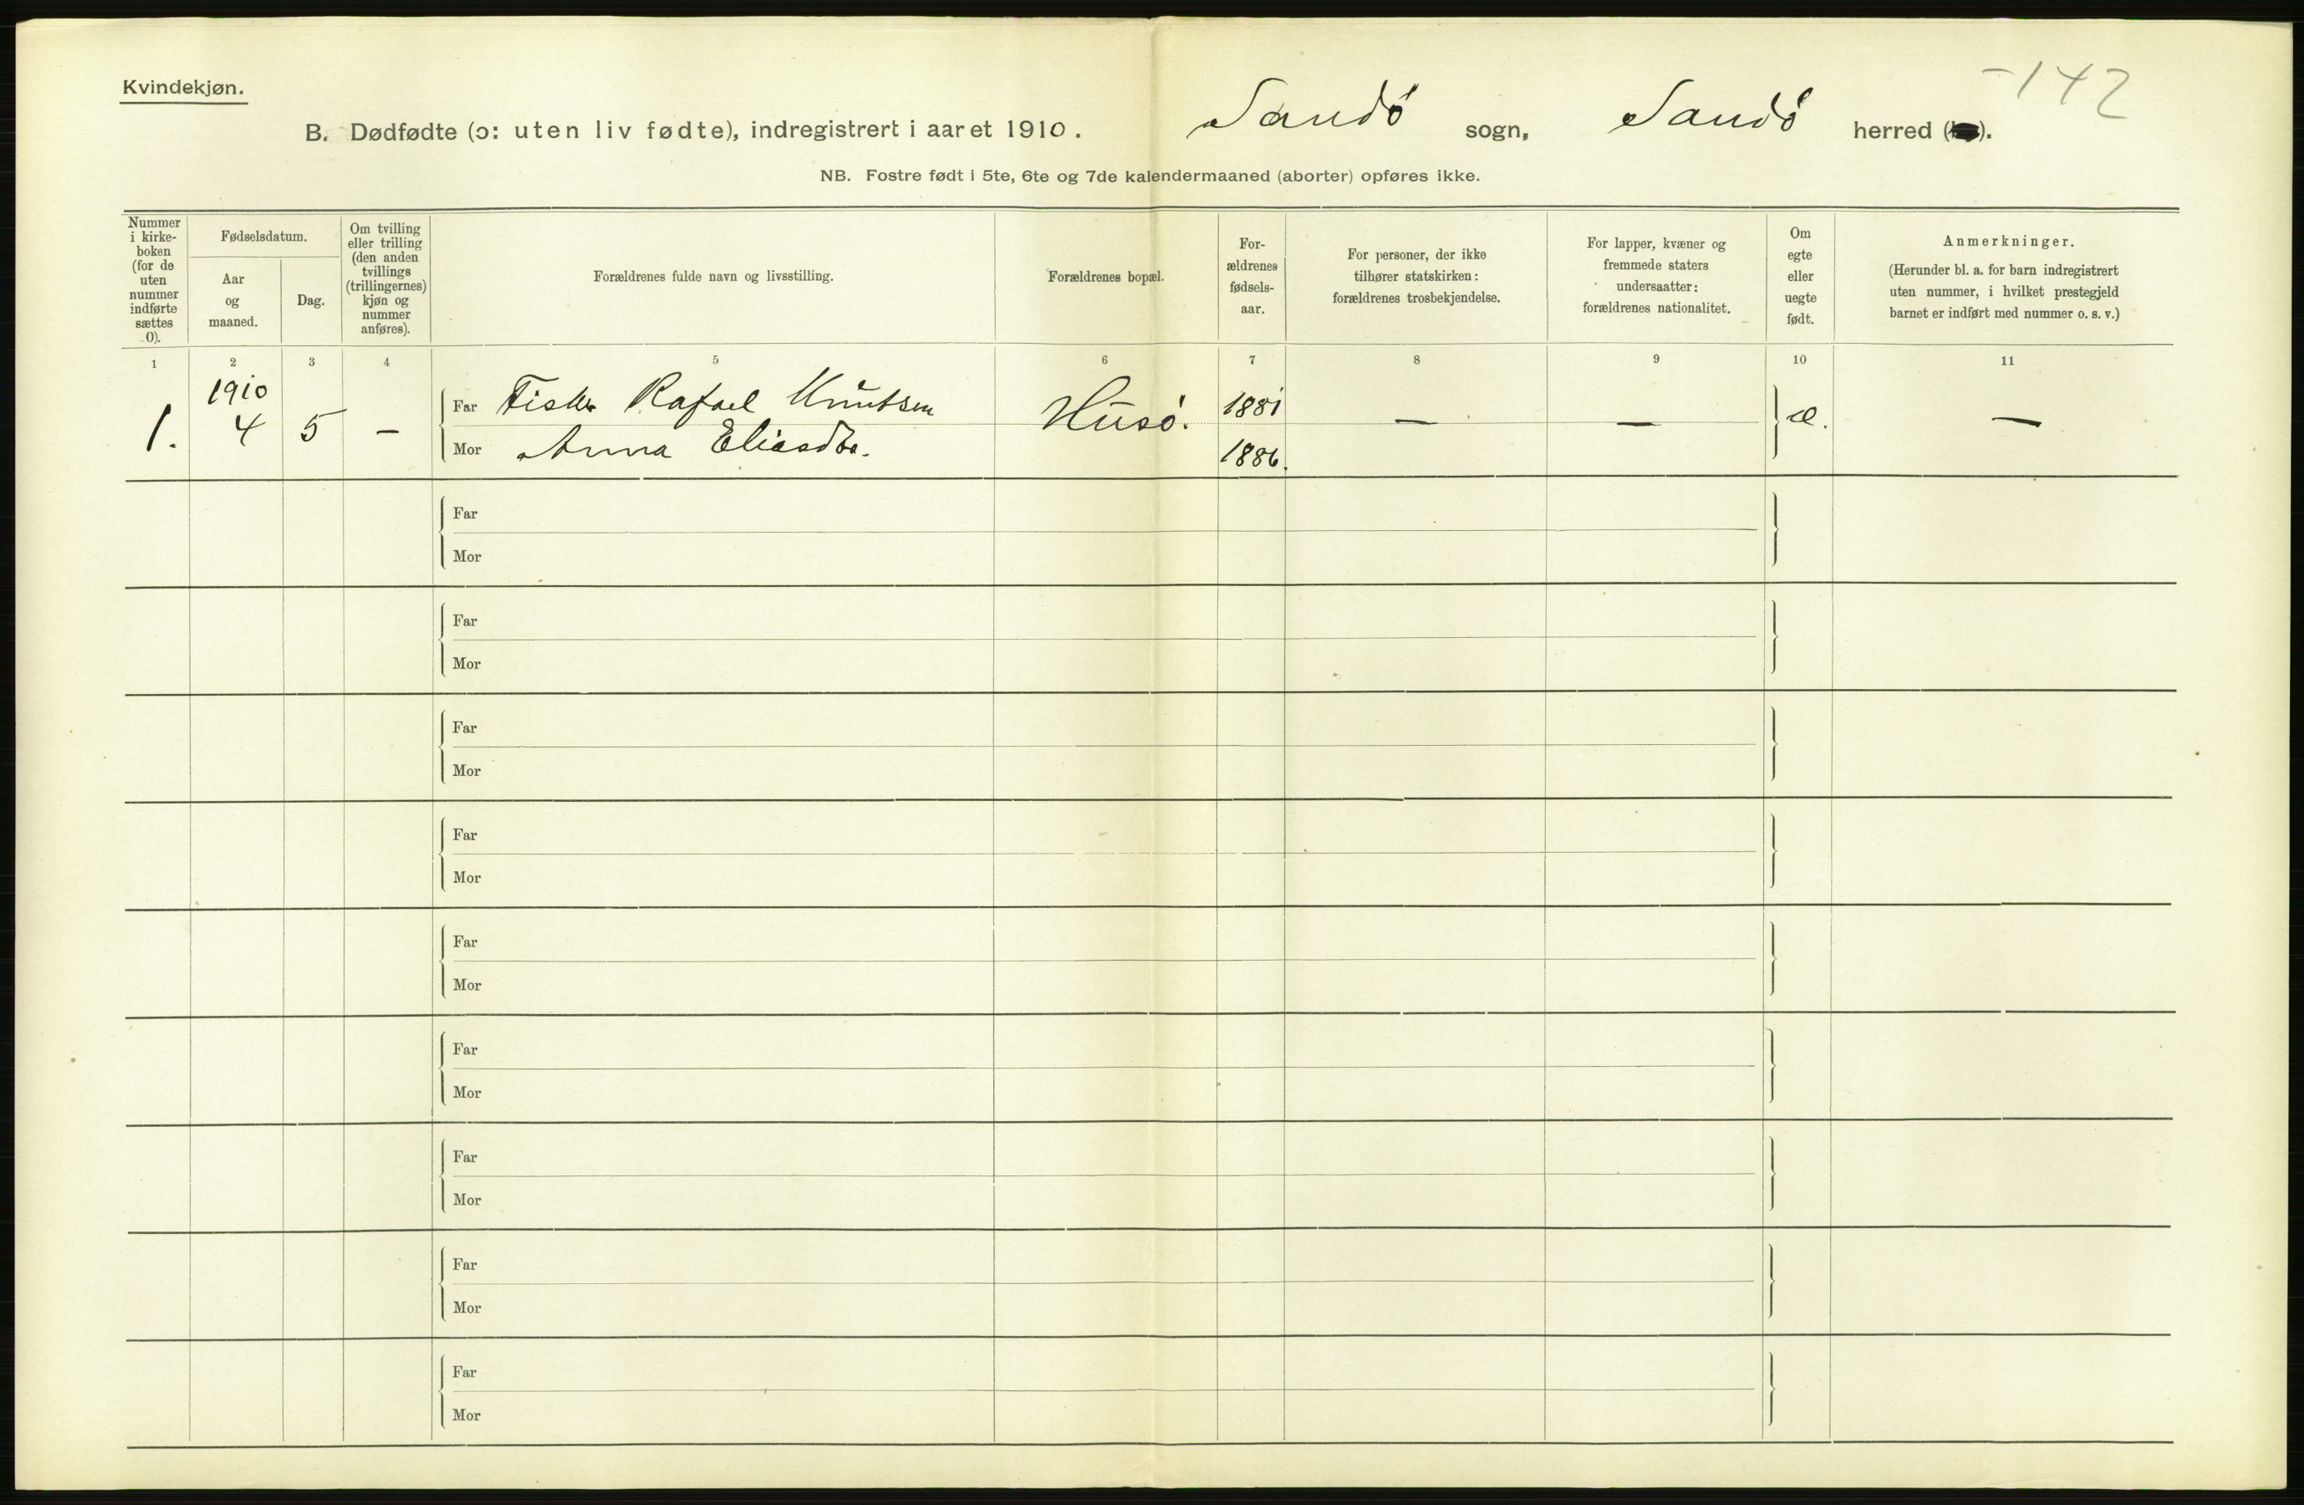 Kvindekjøn.
-142
B. Dødfødte (ɔ: uten liv fødte), indregistrert i aaret 1910. Sandö sogn, Sandö herred ( ).
NB. Fostre født i 5te, 6te og 7de kalendermaaned (aborter) opføres ikke.
Nummer
i kirke-
boken
(for de
uten
nummer
indførte
sættes
0).
Fødselsdatum.
Aar
og
maaned.
Dag.
Om tvilling
eller trilling
(den anden
tvillings
(trillingernes)
kjøn og
nummer
anføres).
Forældrenes fulde navn og livsstilling.
Forældrenes bopæl.
For-
ældrenes
fødsels-
aar.
For personer, der ikke
tilhører statskirken:
forældrenes trosbekjendelse.
For lapper, kvæner og
fremmede staters
undersaatter:
forældrenes nationalitet.
Om
egte
eller
uegte
født.
Anmerkninger.
(Herunder bl. a. for barn indregistrert
uten nummer, i hvilket prestegjeld
barnet er indført med nummer o. s. v.)
1 2 3 4 5 6 7 8 9 10 11
1910
1. 4 5 - Far Fisker Rafael Knutsen Husö. 1881 — — æ. —
Mor Anna Eliasdtr. 1886.
Far
Mor
Far
Mor
Far
Mor
Far
Mor
Far
Mor
Far
Mor
Far
Mor
Far
Mor
Far
Mor